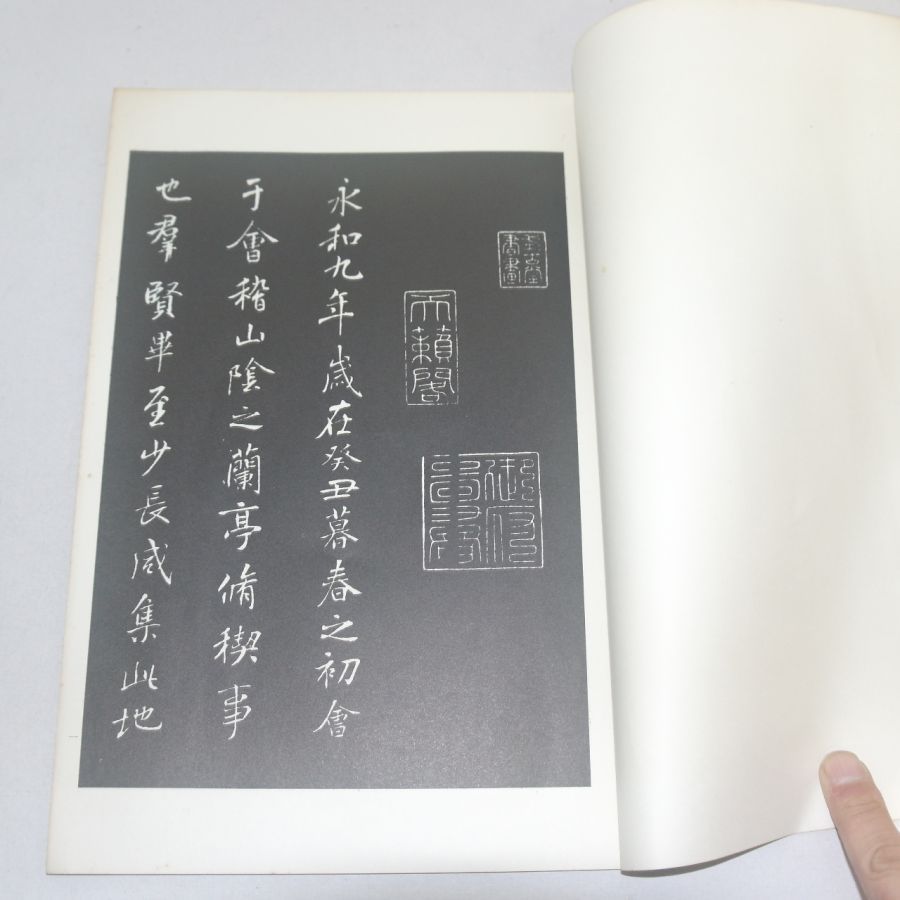 天籟閣
永和九年歲在癸丑暮春之初會
于會稽山陰之蘭亭脩稧事
也羣賢畢至少長咸集此地